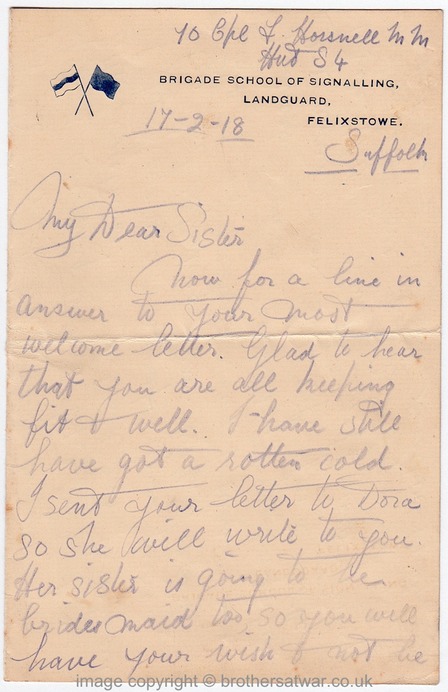 To Cpl F. Horsnell M M
Hut S4
BRIGADE SCHOOL OF SIGNALLING,
LANDGUARD,
FELIXSTOWE.
17-2-18
Suffolk
My Dear Sister
Now for a line in
answer to your most
welcome letter. Glad to hear
that you are all keeping
fit & well. I have still
have got a rotten cold.
I sent your letter to Dora
so she will write to you.
Her sister is going to be
brides maid too, so you will
have your wish & not be
image copyright © brothersatwar.co.uk